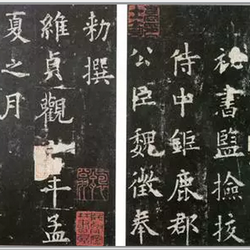 祕書監撿挍
侍中鉅鹿郡
公臣魏徵奉
勑撰
維貞觀年孟
夏之月